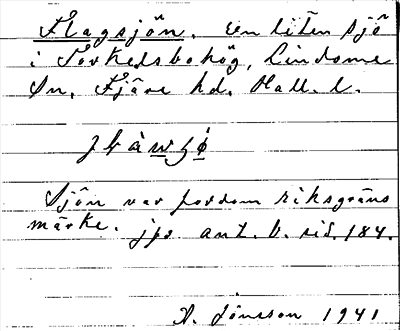 Flagsjön. En liten sjö
i Torkedsbohög, Lindome
Sn, Fjäre hd. Hall. l.
Sjön var fordom riksgräns
märke. jfr ant. b. sid. 184.
A. Jönsson 1941